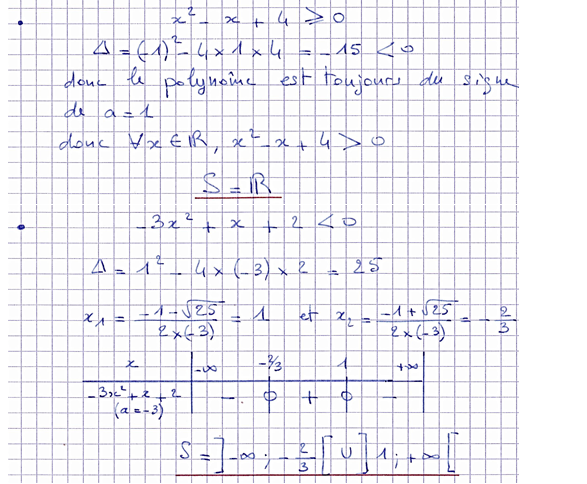 • x² - x + 4 ⩾ 0
Δ = (-1)² - 4 × 1 × 4 = -15 < 0
donc le polynôme est toujours du signe
de a = 1
donc ∀x ∈ ℝ, x² - x + 4 > 0
S = ℝ
• -3x² + x + 2 < 0
Δ = 1² - 4 × (-3) × 2 = 25
x₁ = (-1 - √25)/(2 × (-3)) = 1 et x₂ = (-1 + √25)/(2 × (-3)) = -2/3
x -∞ -2/3 1 +∞
-3x² + x + 2 - 0 + 0 -
(a = -3)
S = ]-∞ ; -2/3[ ∪ ]1 ; +∞[